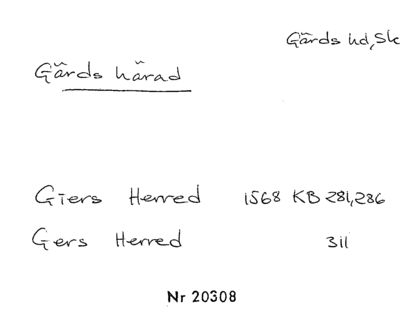 Gärds hd, Sk
Gärds härad
Giers Herred 1568 KB 281,286
Gers Herred 311
Nr 20308